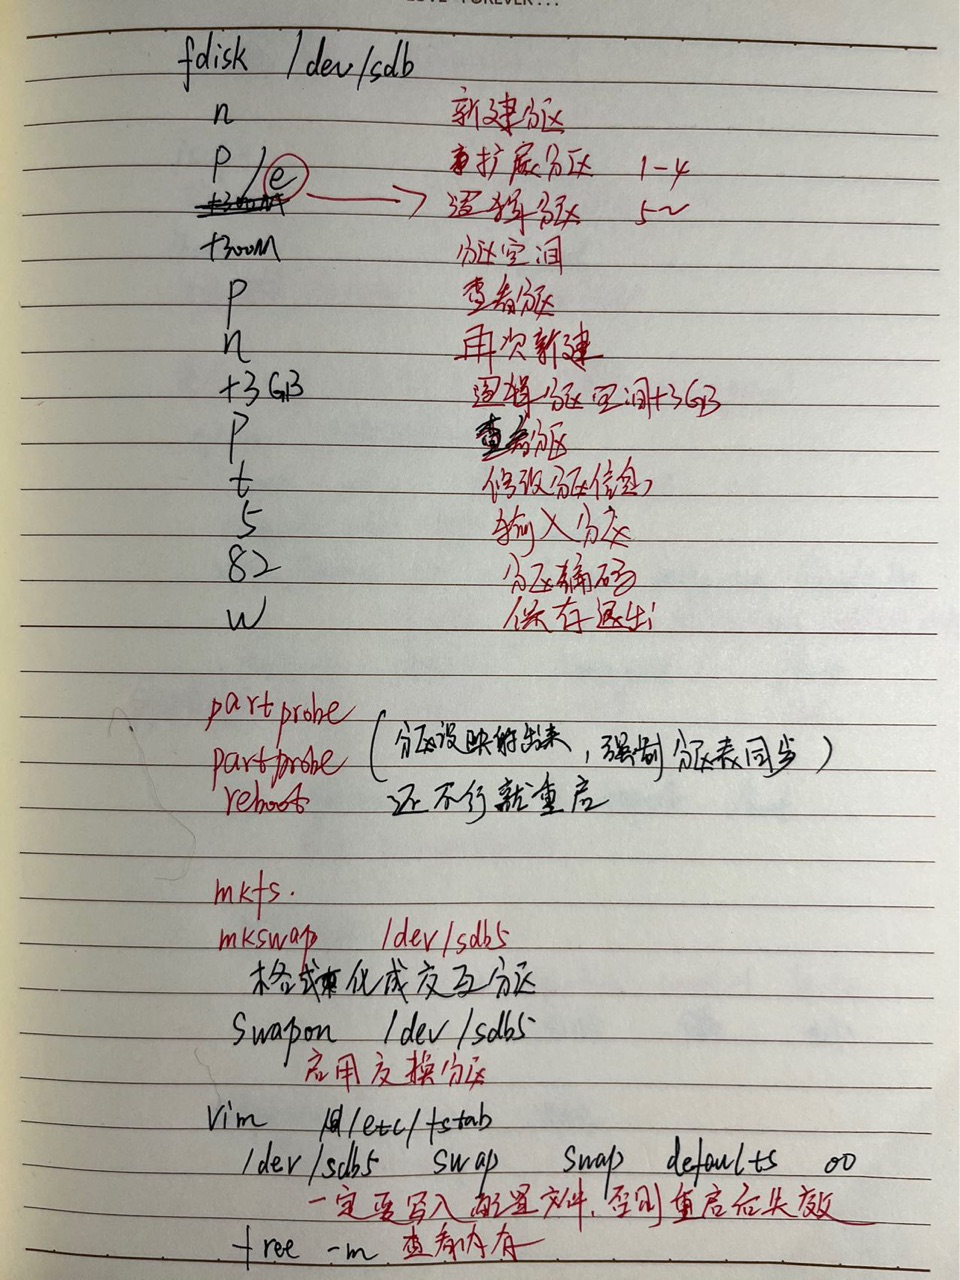 fdisk /dev/sdb
n 新建分区
p/e 扩展分区 1-4
逻辑分区 5~
+300M 分区空间
p 查看分区
n 再次新建
+3GB 逻辑分区空间+3GB
p 查看分区
t 修改分区信息
5 输入分区
82 分区编码
w 保存退出
partprobe
partprobe (分区没映射出来,强制分区表同步)
reboot 还不行就重启
mkfs.
mkswap /dev/sdb5
格式化成交互分区
swapon /dev/sdb5
启用交换分区
vim /etc/fstab
/dev/sdb5 swap swap defaults 00
一定要写入配置文件,否则重启后失效
free -m 查看内存